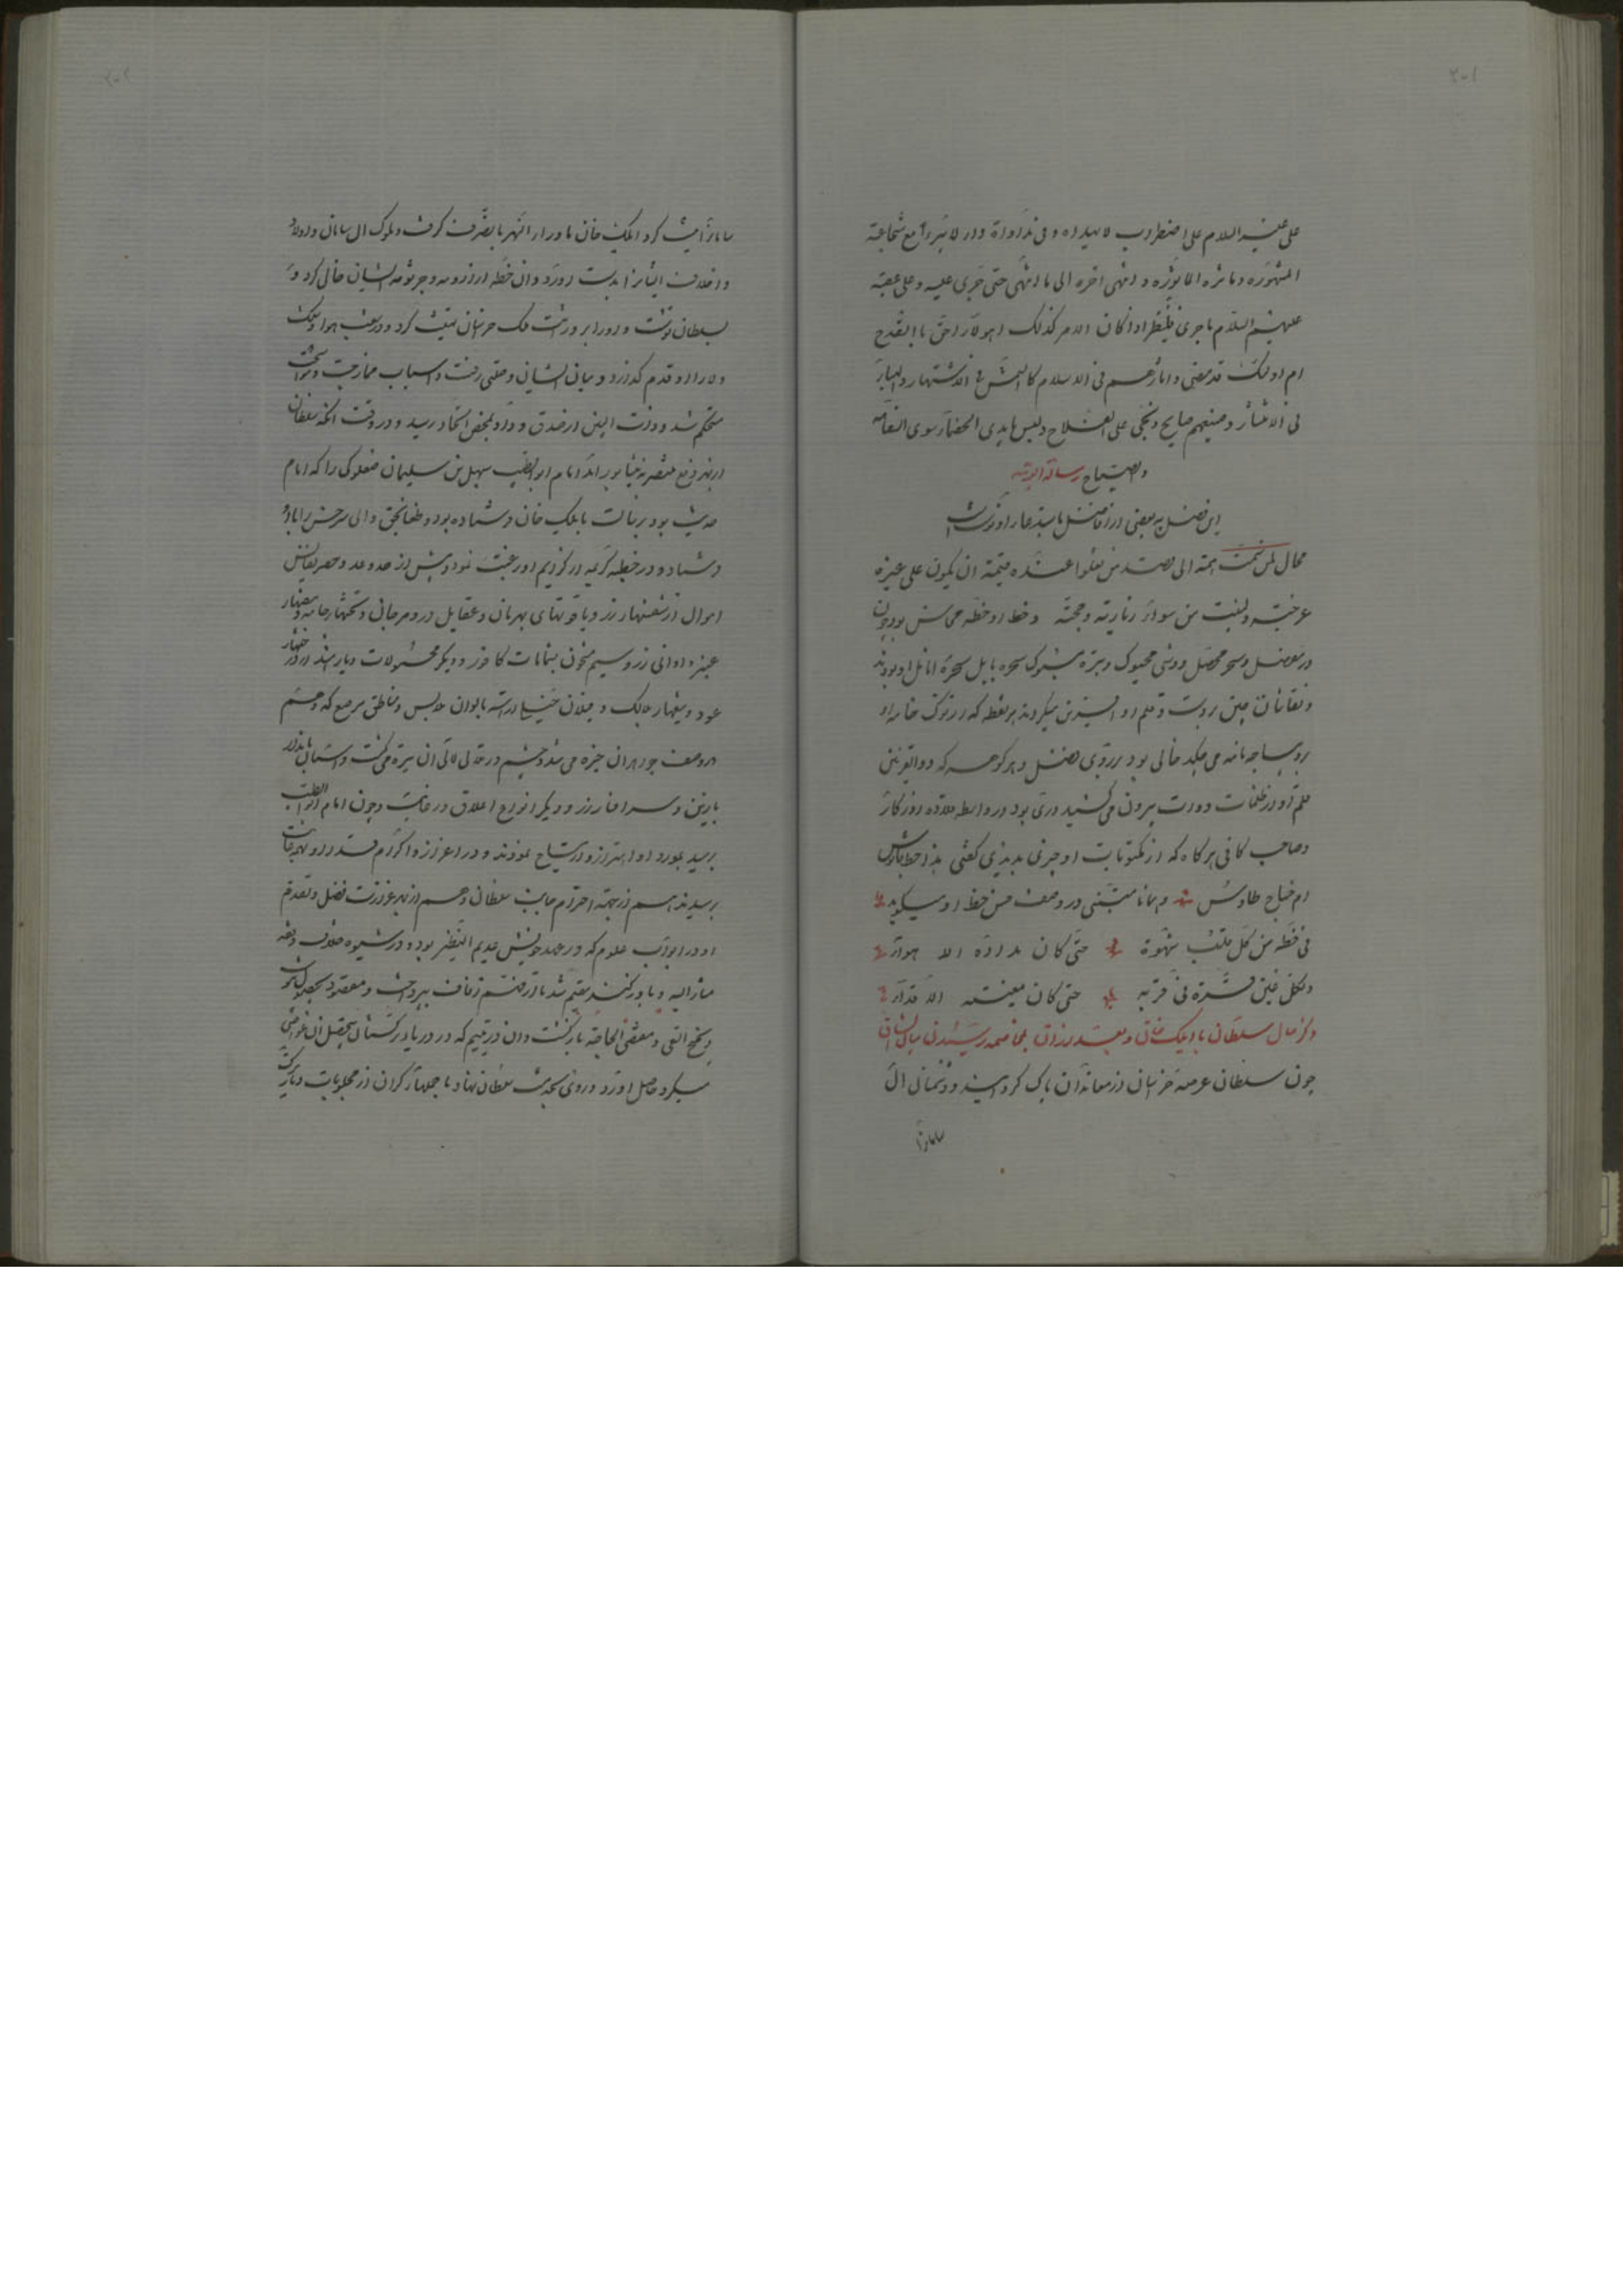 ۲۰۱
علی علیه السلام علی اضطراب لا یهیدا و فی تداواة وار لا یبرء مع شجاعته
المشهوره و ماثره الماثوره و انتهی اخره الی ما انتهی حتی جری علیه و علی عقبه
علیهم السلام ما جری فلینظر اذا کان الامر کذلک اهولاء احق بالقدح
ام اولئک قد مضی و اثارهم فی الاسلام کالشمس فی الاشتهار و النهار
فی الانتشار و صنیعهم صایح و حی علی الفلاح و لیس بایدی الحضار سوی النقاعه
والصیاح رسالة الوتیه
این فصل به بعضی از افاضل باستدعاء او نوشت
محال لمن سمت همته الی قصد من یعلوا عنده قیمته ان یکون علی غیره
عرجته و لیست من سواه زیارته و حجته و خط او خطه محاسن بود و چون
در معضل و سحر محصل و وشی محبوک و تبره مسبوک سحره بابل سخره انامل او بودند
و نقاشان چین بر دست و قلم او افرین میکردند هر نقطه که از نوک خامه او
بر دیباجه نامه می چکید خالی بود بر روی فضل و هر گوهر که ذو القرنین
قلم او از ظلمات دوات بیرون می کشید دری بود در واسطه قلاده روزگار
و صاحب کافی هرگاه که از مکتوبات او چیزی بدیدی گفتی هذا خط قابوس
ام جناح طاوس و همانا متنبی در وصف حسن خط او میگوید
فی خطه من کل قلب شهوة حتی کان مداده الا هواء
ولکل عین قرة فی قربه حتی کان مغیبه الا قذاء
ذکر حال سلطان با ایلک خان و بعد از ان بمخاصمه رسیدن میان ایشان
چون سلطان عرصه خراسان از معاندان پاک کردانید و دشمنان ال
سامانرا
۲۰۲
سامانرا نیست کرد ایلک خان ما وراء النهر با تصرف گرفت و ملوک ال سامان و اولاد
و اخلاف ایشانرا بدست اورد و ان خطه از ارومه و جرثومه ایشان خالی کرد و
بسلطان نوشت و او را بر وراثت ملک خراسان تهنیت کرد و در شعب هوا و سلک
ولاء او قدم گذارد و میان ایشان وصلتی رفت و اسباب ممازجت و مواشجت
مستحکم شد و ذات البین از صدق و داد بمحض اتحاد رسید و در وقت انکه سلطان
از بهر دفع منتصر به نیشابور امد امام ابو الطیب سهل بن سلیمان صعلوکی را که امام
حدیث بود برسالت بایلک خان فرستاده بود و طغانجق والی سرخس را با او
فرستاد و در خطبه کریمه از کرایم او رغبت نمود و بیش از حد و عد و حصر نفایس
اموال از شفشهاء زر و یاقوتهای بهرمان و عقایل در و مرجان و تختهاء جامه و بیضهاء
عنبر و اوانی زر و سیم مشحون بشمامات کافور و دیگر محمولات دیار هند از درختهاء
عود و تیغهاء مالک و فیلان جنگی اراسته بالوان ملابس و مناطق مرصع که چشم
در وصف جواهر ان خیره می شد و چشم در تلالی لالی ان تیره می گشت و اسبان نامدار
با زین و سر افسار زر و دیگر انواع اعلاق در غایت و چون امام ابو الطیب
برسید بورود او اهتزاز و ارتیاح نمودند و در اعزاز و اکرام قدر او بنهایت
برسیدند هم از جهت احترام جانب سلطان و هم از بهر غزارت فضل و تقدم
او در ابواب علوم که در عهد خویش عدیم النظیر بود و در شیوه خلاف و فقه
مشار الیه و باوزکند مقیم شد تا از قسم زفاف بپرداخت و مقصود بحصول پیوست
و نجح السعی و مقضی الحاجة بازگشت و ان در یتیم که در دریاء ترکستان بتحصیل ان غواصی
میکرد حاصل اورد و روی بخدمت سلطان نهاد با حملهاء گران از مجلوبات دیار ترک